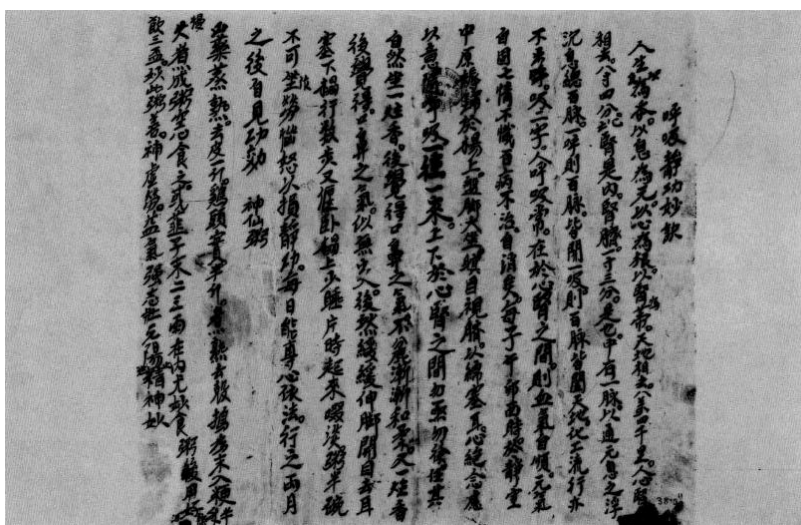 呼吸静功妙訣
人生以氣為本以息為元以心為根以腎為蒂天地相去八万四千里人心腎
相去八寸四分此腎是内腎臍下一寸三分是也中有一脉以通元息之浮
沉息總百脉一呼則百脉皆開一吸則百脉皆闔天地化工流行亦
不出呼吸二字人呼吸常在於心腎之間則血氣自順元氣
自固七情不熾百病不治自消矣每子午卯酉時於静室
中厚褥鋪於榻上盤脚大坐瞑目視臍以綿塞耳心絕念慮
以意随呼吸一往一来上下於心腎之間勿亟勿徐任其
自然坐一炷香後覺得口鼻之氣不麄漸漸和柔又一炷香
後覺得口鼻之氣似無出入後然緩緩伸脚開目去耳
塞下榻行数步又偃卧榻上少睡片時起来啜淡粥半碗
不可作劳惱怒以損静功每日能專心依法行之兩月
之後自見功効　神仙粥
山藥蒸熟去皮一斤鷄頭實半斤煮熟去殼搗為末入粳米半升
慢火煮成粥空心食之或韮子末二三兩在内尤妙食粥後用好
飲三盃妙此粥善補虚勞益氣強志壮元陽精神妙